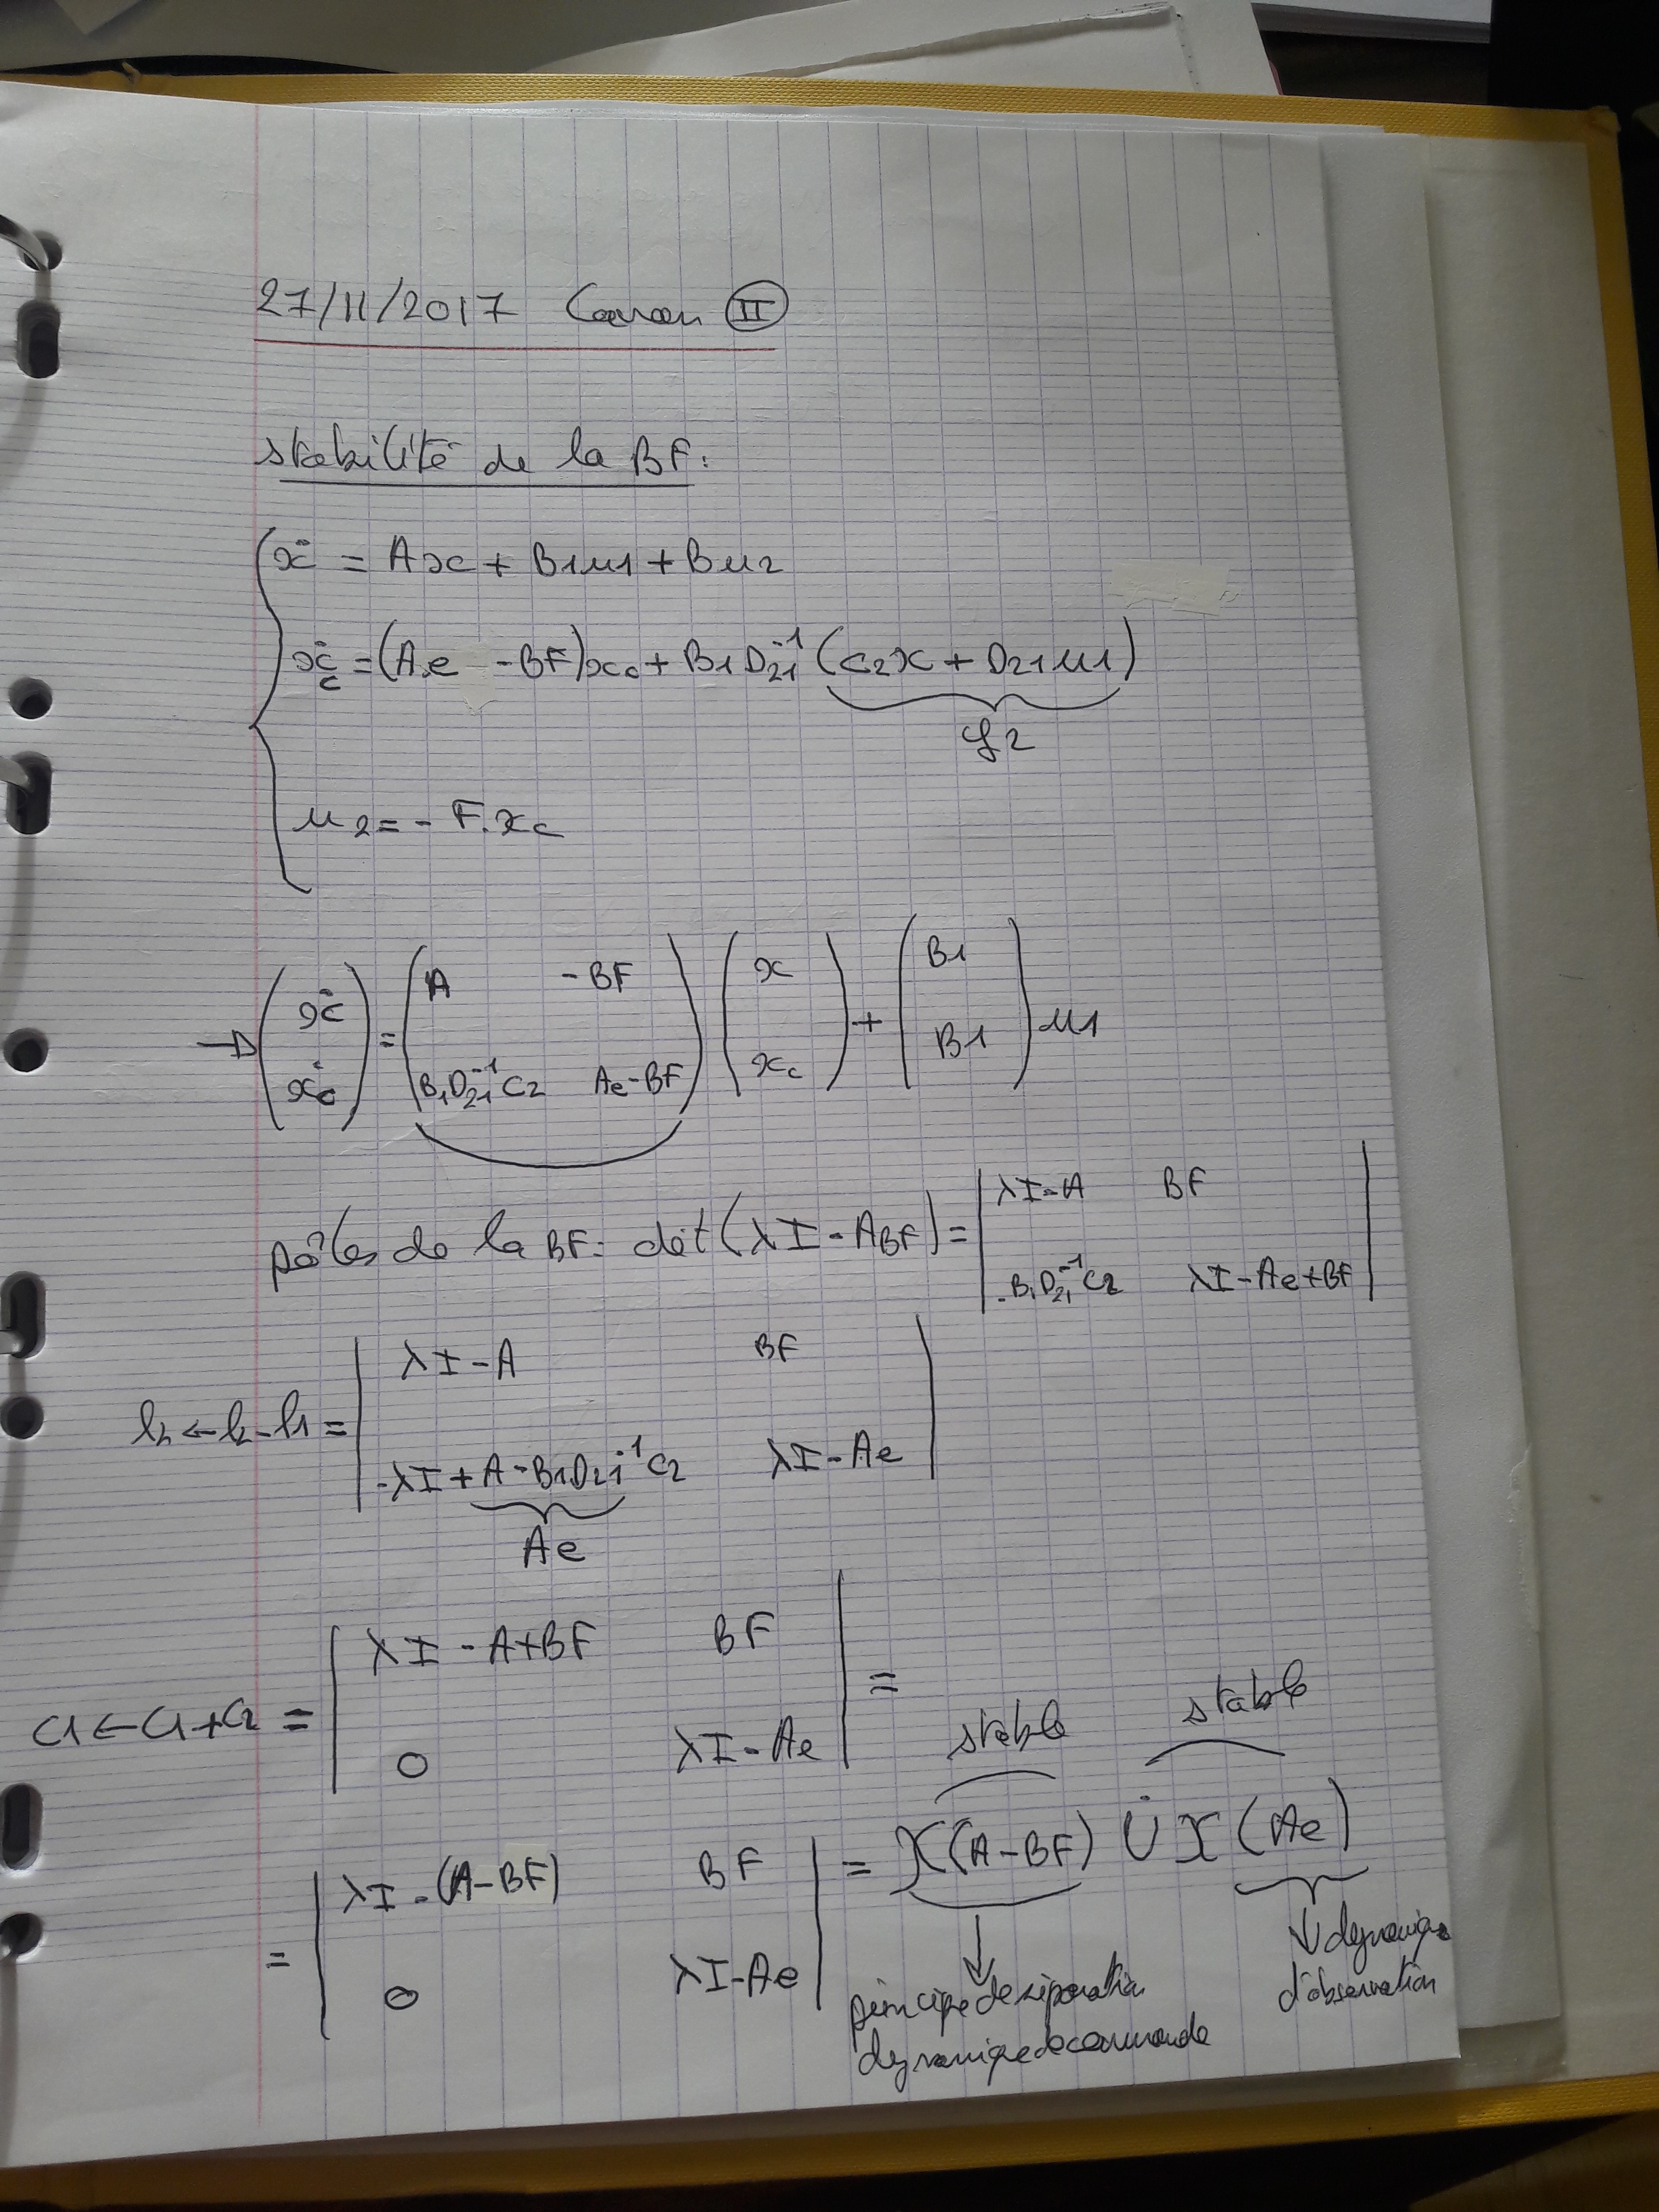 27/11/2017 (II)
stabilité de la BF:
ẋ = Ax + B1u1 + Bu2
ẋc = (Ae - BF)xc + B1D21^-1 (C2x + D21u1)
y2
u2 = - F.xc
→ (ẋ ; ẋc) = (A  -BF ; B1D21^-1C2  Ae-BF) (x ; xc) + (B1 ; B1) u1
pôles de la BF: dét(λI - ABF) = | λI-A  BF ; -B1D21^-1C2  λI-Ae+BF |
l2 ← l2 - l1 = | λI-A  BF ; -λI + A - B1D21^-1C2  λI-Ae |
Ae
C1 ← C1 + C2 = | λI - A+BF  BF ; 0  λI-Ae | =
stable stable
= | λI - (A-BF)  BF ; 0  λI-Ae | = X(A-BF) ∪̇ X(Ae)
↓ principe de séparation
dynamique de commande
↓ dynamique
d'observation